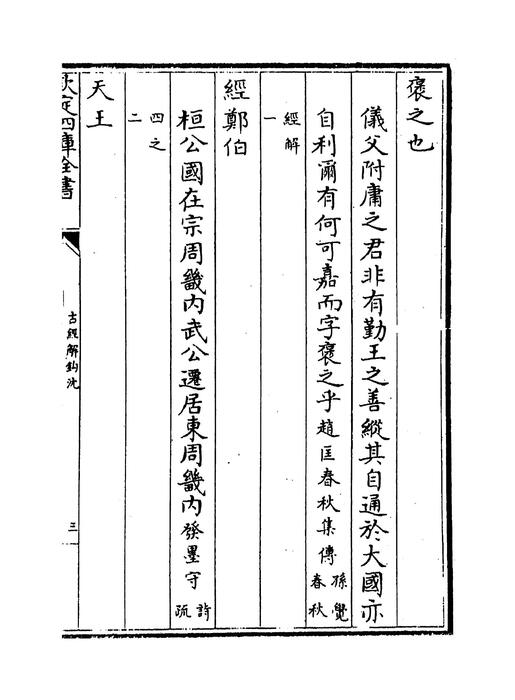 襃之也
儀父附庸之君非有勤王之善縱其自通於大國亦
自利爾有何可嘉而字襃之乎趙匡春秋集傳孫覺春秋
經解一
經鄭伯
桓公國在宗周畿內武公遷居東周畿內發墨守詩疏
四之二
天王
欽定四庫全書
古經解鈎沈
三